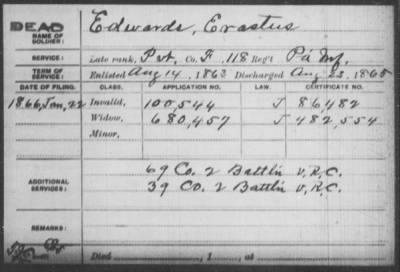 DEAD Edwards, Erastus
NAME OF SOLDIER:
SERVICE: Late rank, Pvt, Co. F, 118 Reg't Pa Inf.
TERM OF SERVICE: Enlisted Aug 14, 1862 Discharged Aug 23, 1865
DATE OF FILING. CLASS. APPLICATION NO. LAW. CERTIFICATE NO.
1866, Jan, 22 Invalid, 100,544 J 86,482
Widow, 680,457 J 482,554
Minor,
ADDITIONAL SERVICES: 69 Co. 2 Battl'n V.R.C.
39 Co. 2 Battl'n V.R.C.
REMARKS:
Died , 1 , at